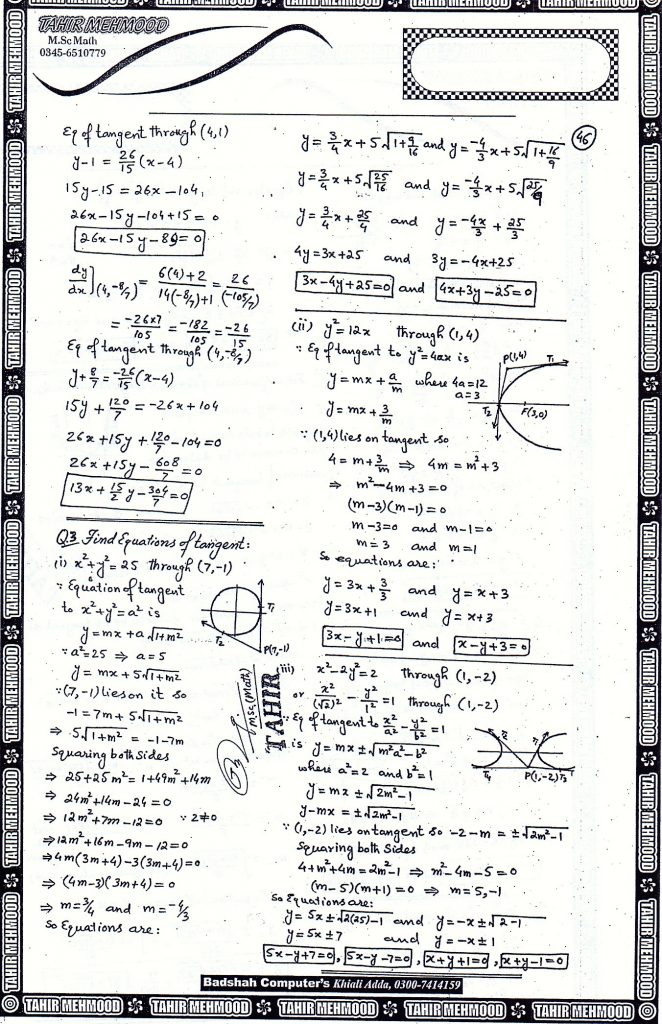 TAHIR MEHMOOD
M.Sc Math
0345-6510779
46
Eq of tangent through (4,1)
y-1 = 26/15 (x-4)
15y-15 = 26x-104,
26x-15y-104+15 = 0
26x-15y-89=0
dy/dx](4,-8/7) = 6(4)+2 / 14(-8/7)+1 = 26/(-105/7)
= -26x7/105 = -182/105 = -26/15
Eq of tangent through (4,-8/7)
y+8/7 = -26/15 (x-4)
15y + 120/7 = -26x+104
26x+15y+120/7-104=0
26x+15y-608/7=0
13x+15/2 y-304/7=0
Q.3 Find Equations of tangent:
(i) x²+y²=25 through (7,-1)
∵ Equation of tangent
to x²+y²=a² is
y=mx+a√1+m²
∵ a²=25 ⇒ a=5
y=mx+5√1+m²
∵ (7,-1) lies on it so
-1=7m+5√1+m²
⇒ 5√1+m² = -1-7m
Squaring both Sides
⇒ 25+25m²=1+49m²+14m
⇒ 24m²+14m-24=0
⇒ 12m²+7m-12=0 ∵ 2≠0
⇒ 12m²+16m-9m-12=0
⇒ 4m(3m+4)-3(3m+4)=0
⇒ (4m-3)(3m+4)=0
⇒ m=3/4 and m=-4/3
So Equations are:
T1
T2
P(7,-1)
M.Sc (Math)
TAHIR
y=3/4 x+5√1+9/16 and y=-4/3 x+5√1+16/9
y=3/4 x+5√25/16 and y=-4/3 x+5√25/9
y=3/4 x+25/4 and y=-4x/3+25/3
4y=3x+25 and 3y=-4x+25
3x-4y+25=0 and 4x+3y-25=0
(ii) y²=12x through (1,4)
∵ Eq of tangent to y²=4ax is
y=mx+a/m where 4a=12
a=3
y=mx+3/m
∵ (1,4) lies on tangent so
4=m+3/m ⇒ 4m=m²+3
⇒ m²-4m+3=0
(m-3)(m-1)=0
m-3=0 and m-1=0
m=3 and m=1
So equations are:
y=3x+3/3 and y=x+3
y=3x+1 and y=x+3
3x-y+1=0 and x-y+3=0
P(1,4)
T1
T2
F(3,0)
(iii) x²-2y²=2 through (1,-2)
or x²/(√2)² - y²/1² =1 through (1,-2)
∵ Eq of tangent to x²/a² - y²/b² =1
is y=mx±√m²a²-b²
where a²=2 and b²=1
y=mx±√2m²-1
y-mx=±√2m²-1
∵ (1,-2) lies on tangent so -2-m=±√2m²-1
Squaring both Sides
4+m²+4m=2m²-1 ⇒ m²-4m-5=0
(m-5)(m+1)=0 ⇒ m=5,-1
So Equations are:
y=5x±√2(25)-1 and y=-x±√2-1
y=5x±7 and y=-x±1
5x-y+7=0, 5x-y-7=0, x+y+1=0, x+y-1=0
T4
P(1,-2)
T3
Badshah Computer's Khiali Adda, 0300-7414159
TAHIR MEHMOOD TAHIR MEHMOOD TAHIR MEHMOOD TAHIR MEHMOOD TAHIR MEHMOOD